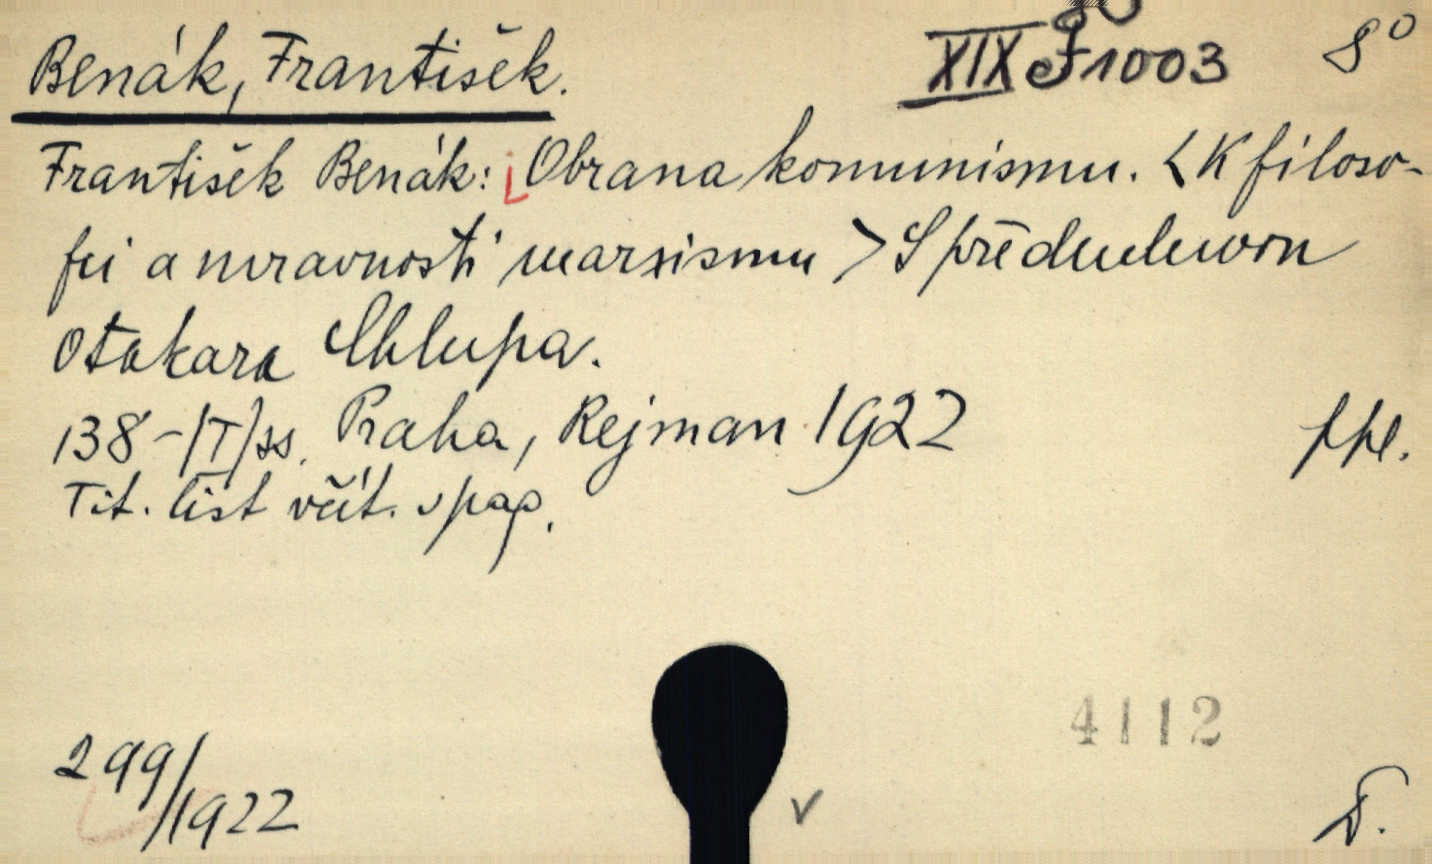 Benák, František.
XIX J 1003
8°
František Benák: Obrana komunismu. <K filoso-
fii a mravnosti marxismu > S předmluvou
Otakara Chlupa.
138-/I/ss. Praha, Rejman 1922
ppl.
Tit. list včít. v pag.
4112
299/1922